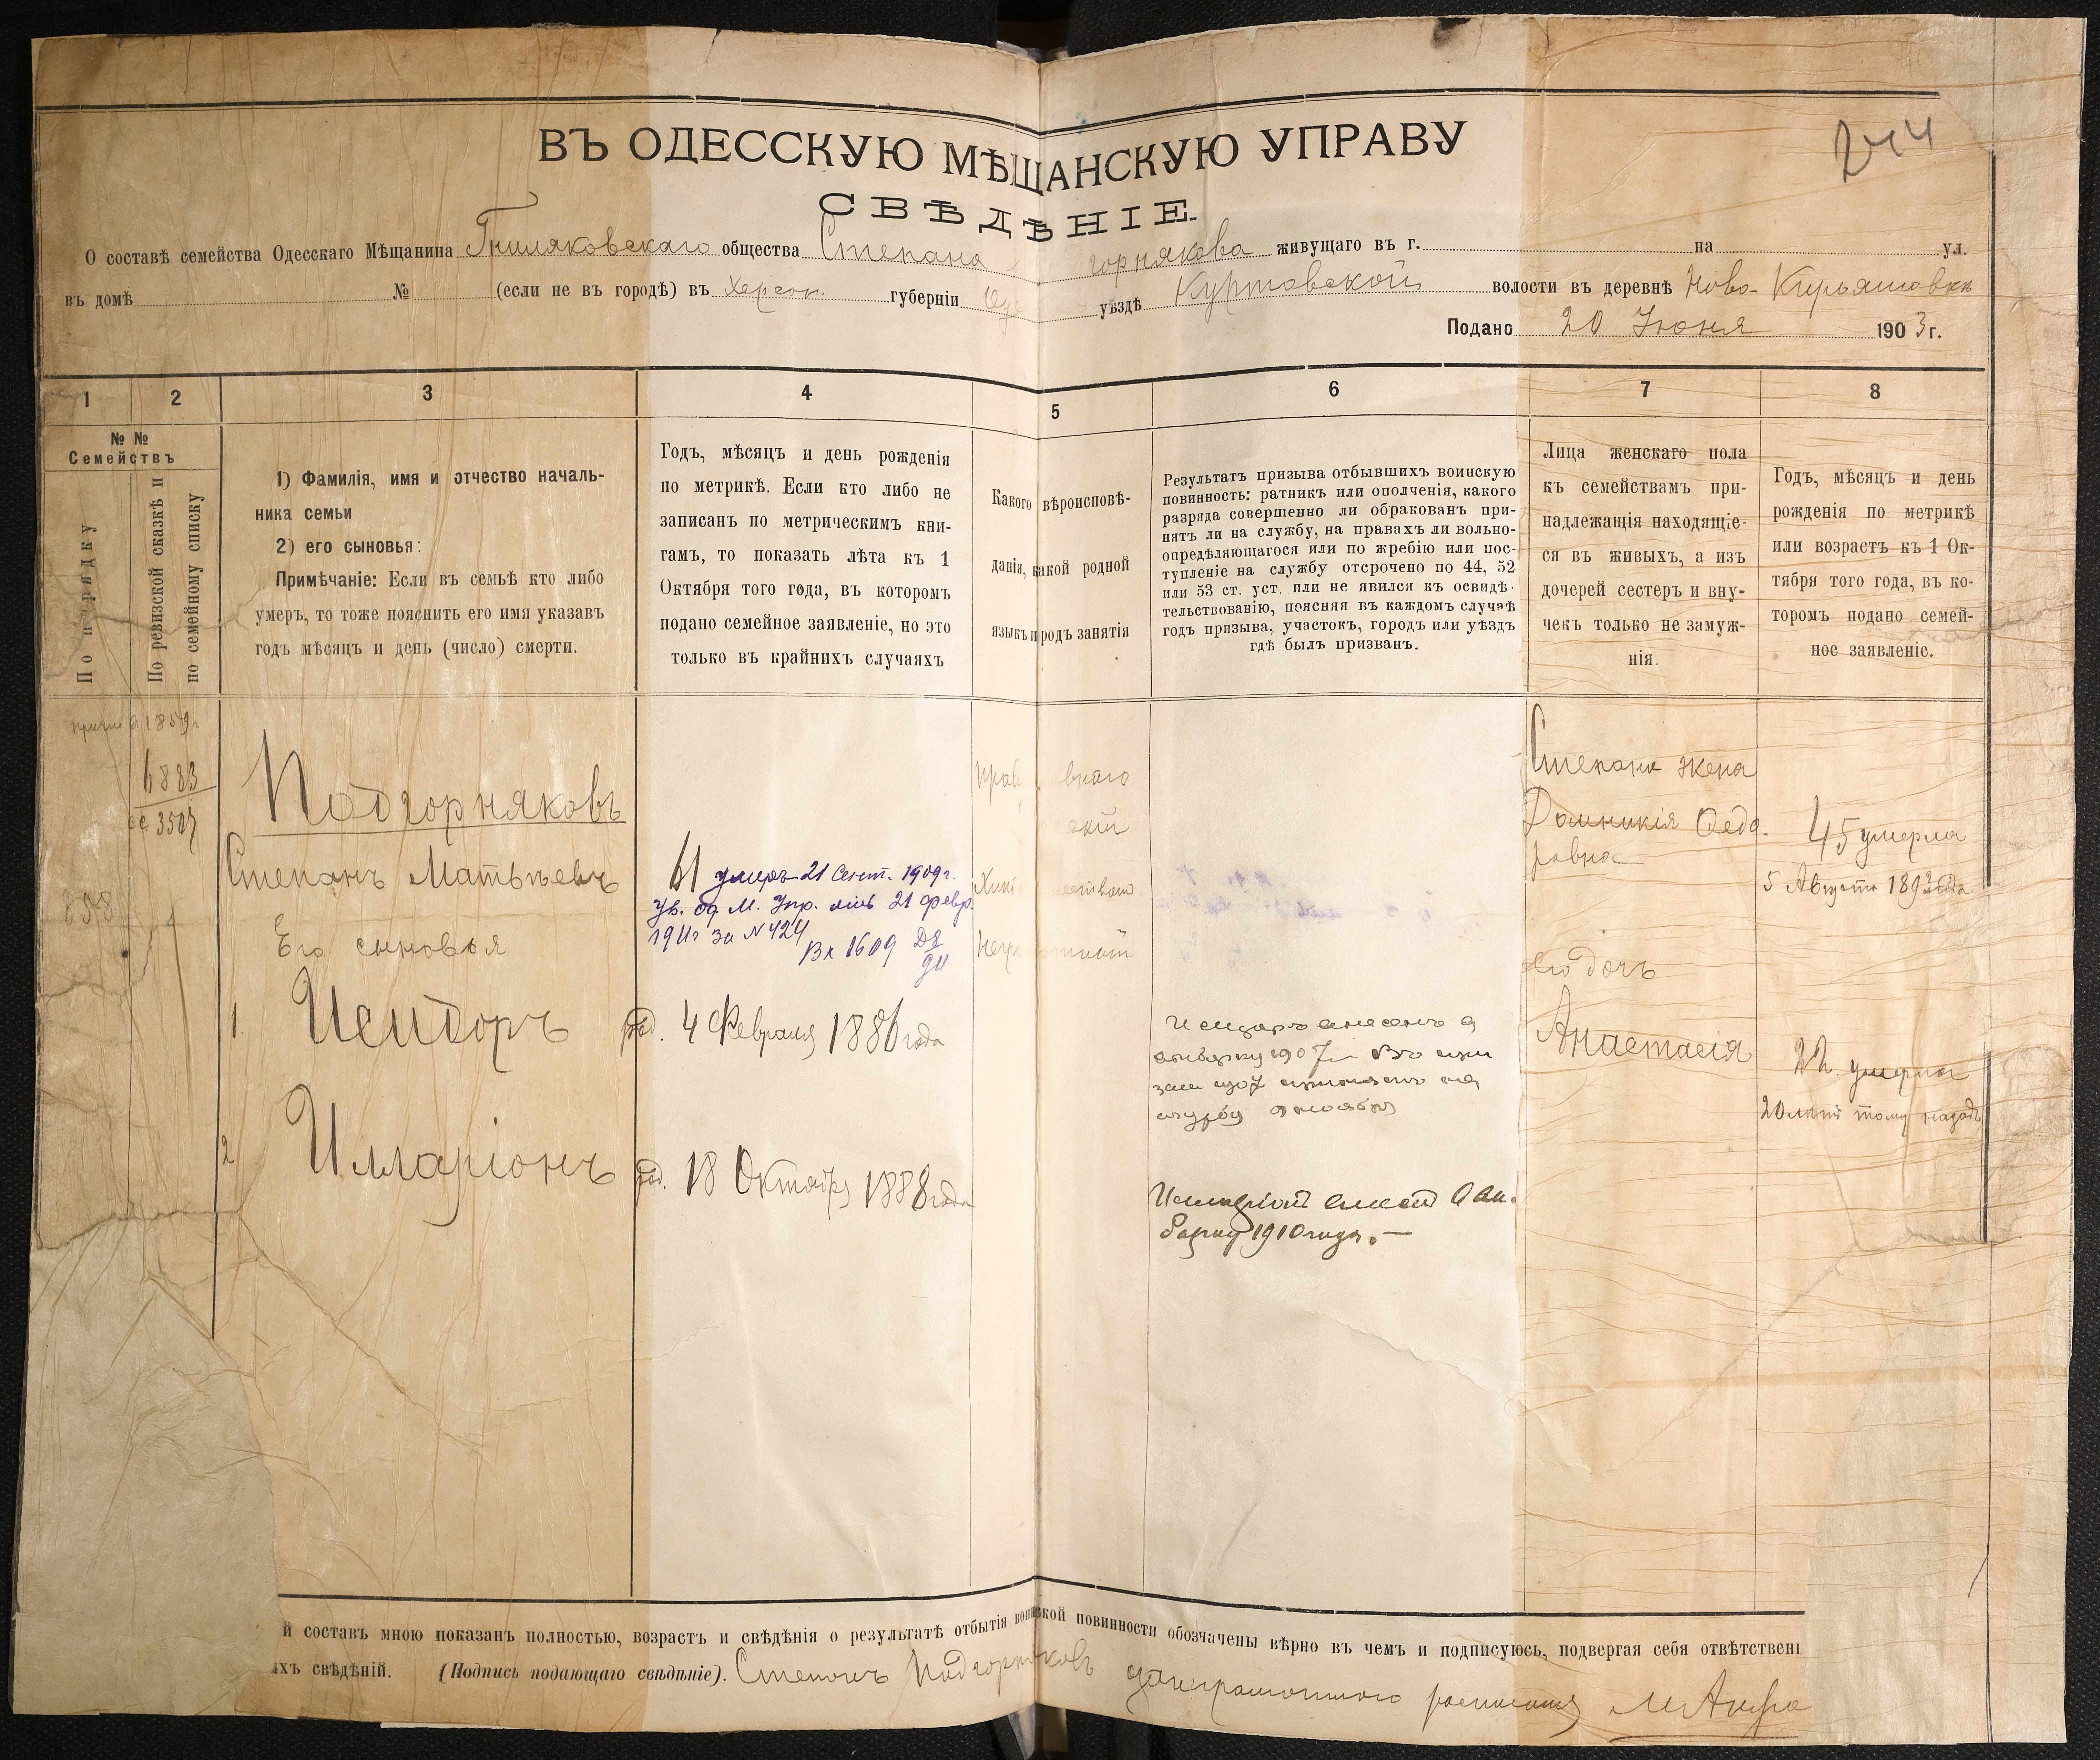 244
ВЪ ОДЕССКУЮ МѢЩАНСКУЮ УПРАВУ
СВѢДѢНІЕ.
О составѣ семейства Одесскаго Мѣщанина Гниляковскаго общества Степана горнякова живущаго въ г. на ул.
въ домѣ № (если не въ городѣ) въ Херсон. губерніи Оде уѣздѣ Куртовской волости въ деревнѣ Ново-Кирьяшовкѣ
Подано 20 Іюня 1903 г.
1 2 3 4 5 6 7 8
№ №
Семействъ
По порядку
По ревизской сказкѣ и
по семейному списку
1) Фамилія, имя и отчество началь-
ника семьи
2) его сыновья:
Примѣчаніе: Если въ семьѣ кто либо
умеръ, то тоже пояснить его имя указавъ
годъ мѣсяцъ и день (число) смерти.
Годъ, мѣсяцъ и день рожденія
по метрикѣ. Если кто либо не
записанъ по метрическимъ кни-
гамъ, то показать лѣта къ 1
Октября того года, въ которомъ
подано семейное заявленіе, но это
только въ крайнихъ случаяхъ
Какого вѣроисповѣ-
данія, какой родной
языкъ и родъ занятія
Результатъ призыва отбывшихъ воинскую
повинность: ратникъ или ополченія, какого
разряда совершенно ли обракованъ при-
нятъ ли на службу, на правахъ ли вольно-
опредѣляющагося или по жребію или пос-
тупленіе на службу отсрочено по 44, 52
или 53 ст. уст. или не явился къ освидѣ-
тельствованію, поясняя въ каждомъ случаѣ
годъ призыва, участокъ, городъ или уѣздъ
гдѣ былъ призванъ.
Лица женскаго пола
къ семействамъ при-
надлежащія находящіе-
ся въ живыхъ, а изъ
дочерей сестеръ и вну-
чекъ только не замуж-
нія.
Годъ, мѣсяцъ и день
рожденія по метрикѣ
или возрастъ къ 1 Ок-
тября того года, въ ко-
торомъ подано семей-
ное заявленіе.
1859г
6883
3507
Подгорняковъ
Степанъ Матьѣевъ
61 умеръ 21 Сент. 1909г.
Ув. Од. М. Упр. отъ 21 февр.
1911г за N 424
Вх 1609
Его сыновья
1. Исидоръ род. 4 Февраля 1886 года
2 Илларіонъ род. 18 Октября 1888 года
Исидоръ внесенъ в
1907
1907 принятъ на
службу
Илларіонъ внесенъ в ли-
1910 года.—
Степана жена
Домникія Федо-
ровна
45 умерла
5 Августа
его дочь
Анастасія
22 умерла
20 лѣтъ тому назадъ
й составъ мною показанъ полностью, возрастъ и свѣдѣнія о результатѣ отбытія воинской повинности обозначены вѣрно въ чемъ и подписуюсь, подвергая себя отвѣтствен
ихъ свѣдѣній. (Подпись подающаго свѣдѣніе). Степанъ Подгорняковъ